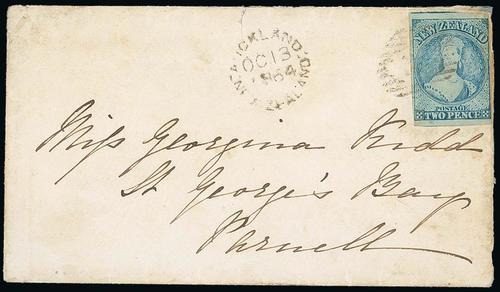 AUCKLAND
NEW ZEALAND
OC 13
1864
NEW ZEALAND
POSTAGE
TWO PENCE
Miss Georgina Kidd
St George's Bay
Parnell